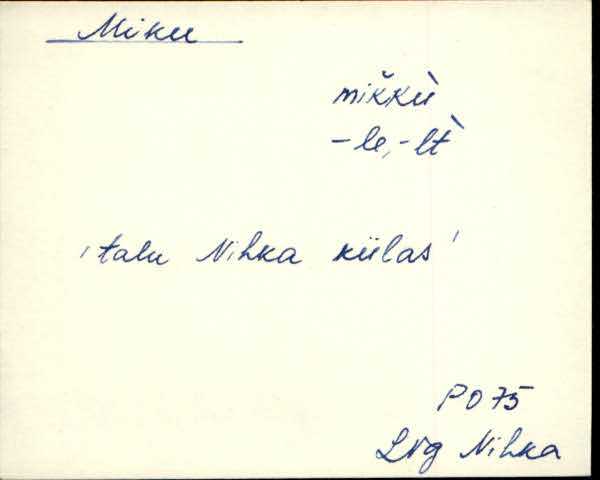 Miku
mikkù
-le, -lt̀
'talu Nihka külas'
PO 75
Lvg Nihka